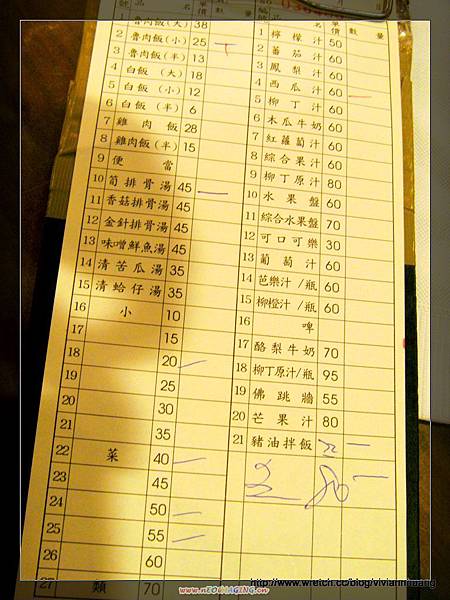 品 名 單價 數 量
魯肉飯(大) 38
2 魯肉飯(小) 25
3 魯肉飯(半) 13
4 白飯(大) 18
5 白飯(小) 12
6 白飯(半) 6
7 雞肉飯 28
8 雞肉飯(半) 15
9 便當
10 筍排骨湯 45
11 香菇排骨湯 45
12 金針排骨湯 45
13 味噌鮮魚湯 45
14 清苦瓜湯 35
15 清蛤仔湯 35
16 小 10
17 15
18 20
25
20 30
21 35
22 菜 40
23 45
24 50
25 55
26 60
27 類 70
月 日
名 單價 數 量
1 檸檬汁 50
2 蕃茄汁 60
3 鳳梨汁 60
4 西瓜汁 60
5 柳丁汁 60
6 木瓜牛奶 60
7 紅蘿蔔汁 60
8 綜合果汁 60
9 柳丁原汁 80
10 水果盤 60
11 綜合水果盤 70
12 可口可樂 30
13 葡萄汁 60
14 芭樂汁/瓶 60
15 柳橙汁/瓶 60
16 啤
17 酪梨牛奶 70
18 柳丁原汁/瓶 95
19 佛跳牆 55
20 芒果汁 80
21 豬油拌飯
80
http://www.wretch.cc/blog/vivianhuang
www.nEOIMAGING.cn